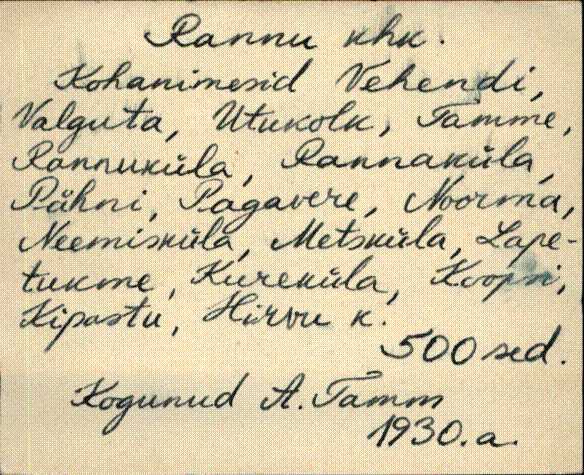 Rannu khk.
Kohanimesid Vehendi,
Valguta, Utukolk, Tamme,
Rannuküla, Rannaküla,
Pähni, Pagavere, Noorma,
Neemisküla, Metsküla, Lape-
tukme, Kureküla, Koopsi,
Kipastu, Hirvu k.
500 sed.
Kogunud A. Tamm
1930. a.